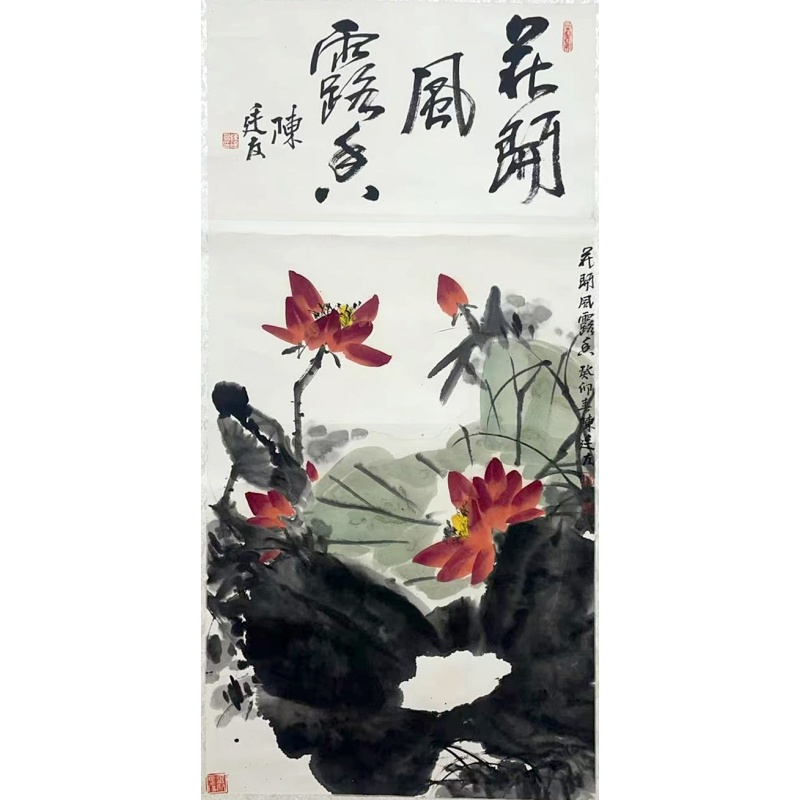 花開
風
露香
陳
廷友
花開風露香 癸卯春陳廷友